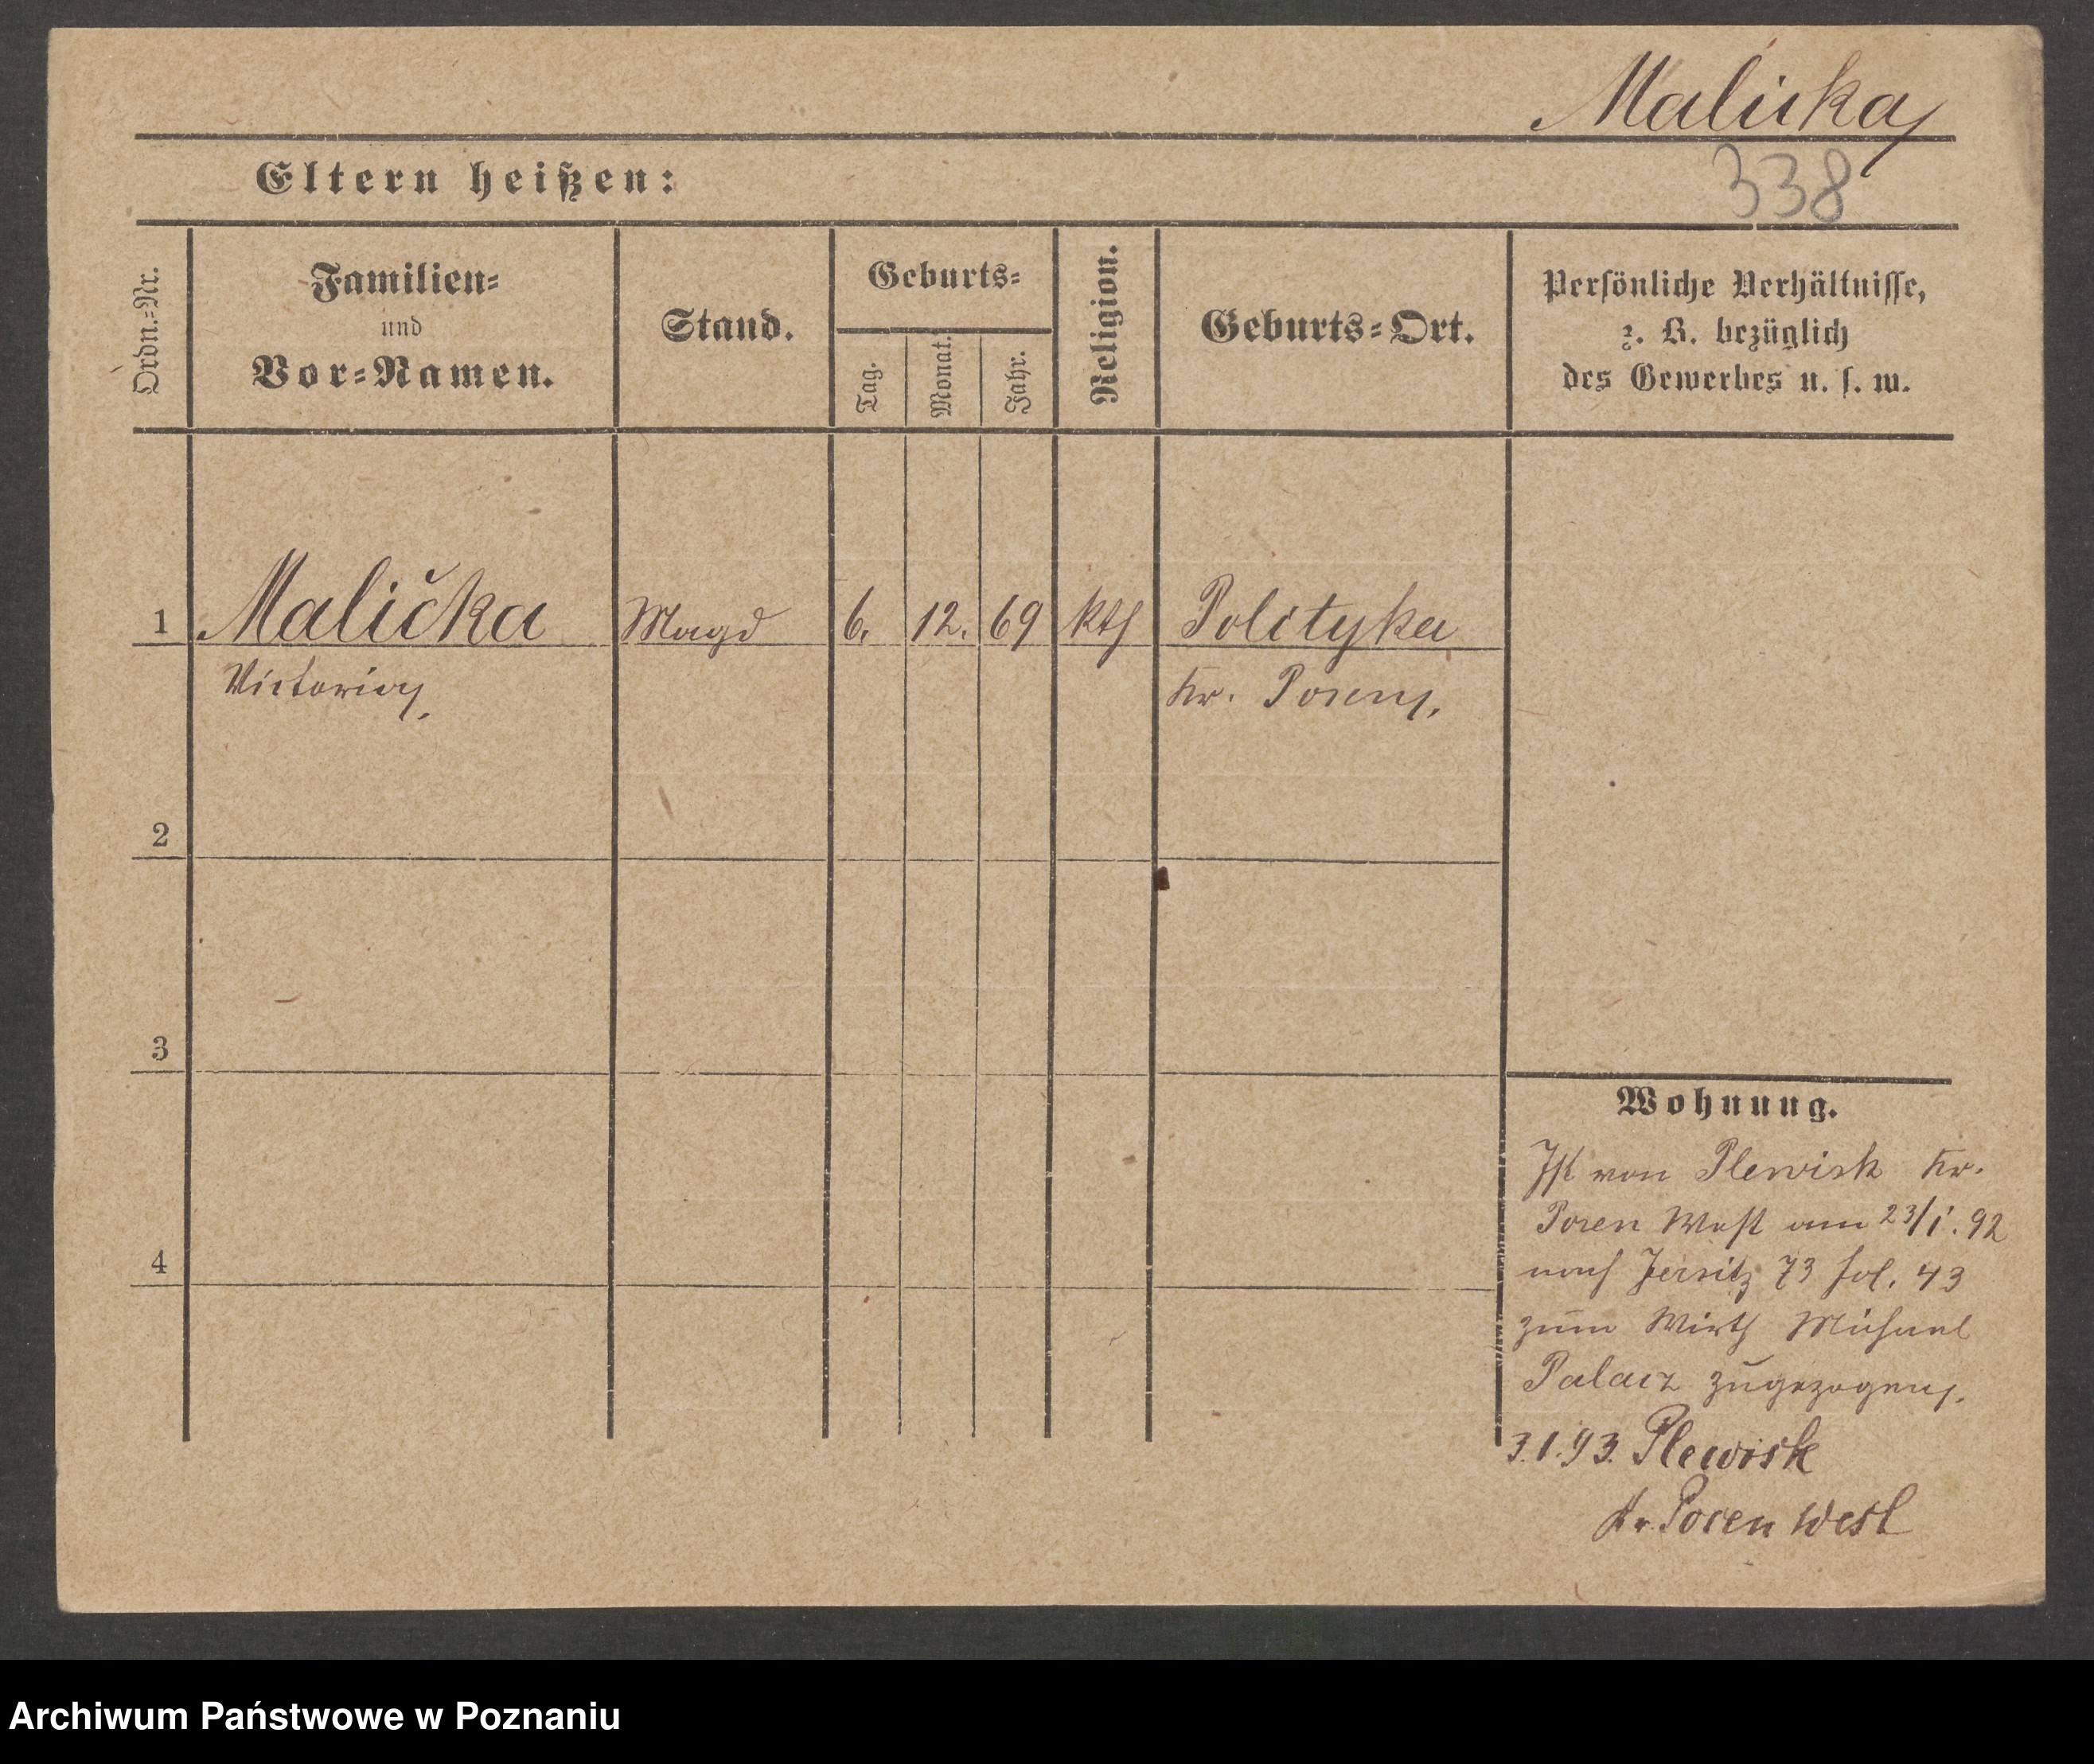 Malicka
338
Eltern heißen:
Ordn.-Nr.
Familien-
und
Vor-Namen.
Stand.
Geburts-
Tag.
Monat.
Jahr.
Religion.
Geburts-Ort.
Persönliche Verhältnisse,
z. B. bezüglich
des Gewerbes u. s. w.
1 Malička Magd 6. 12. 69 kth Polityka
Victoria, Kr. Posen,
2
3
4
Wohnung.
Ist von Plewisk Kr.
Posen West am 23/1. 92
nach Jersitz 73 fol. 43
zum Wirth Michael
Palacz zugezogen,
3.1.93. Plewisk
Kr. Posen West
Archiwum Państwowe w Poznaniu